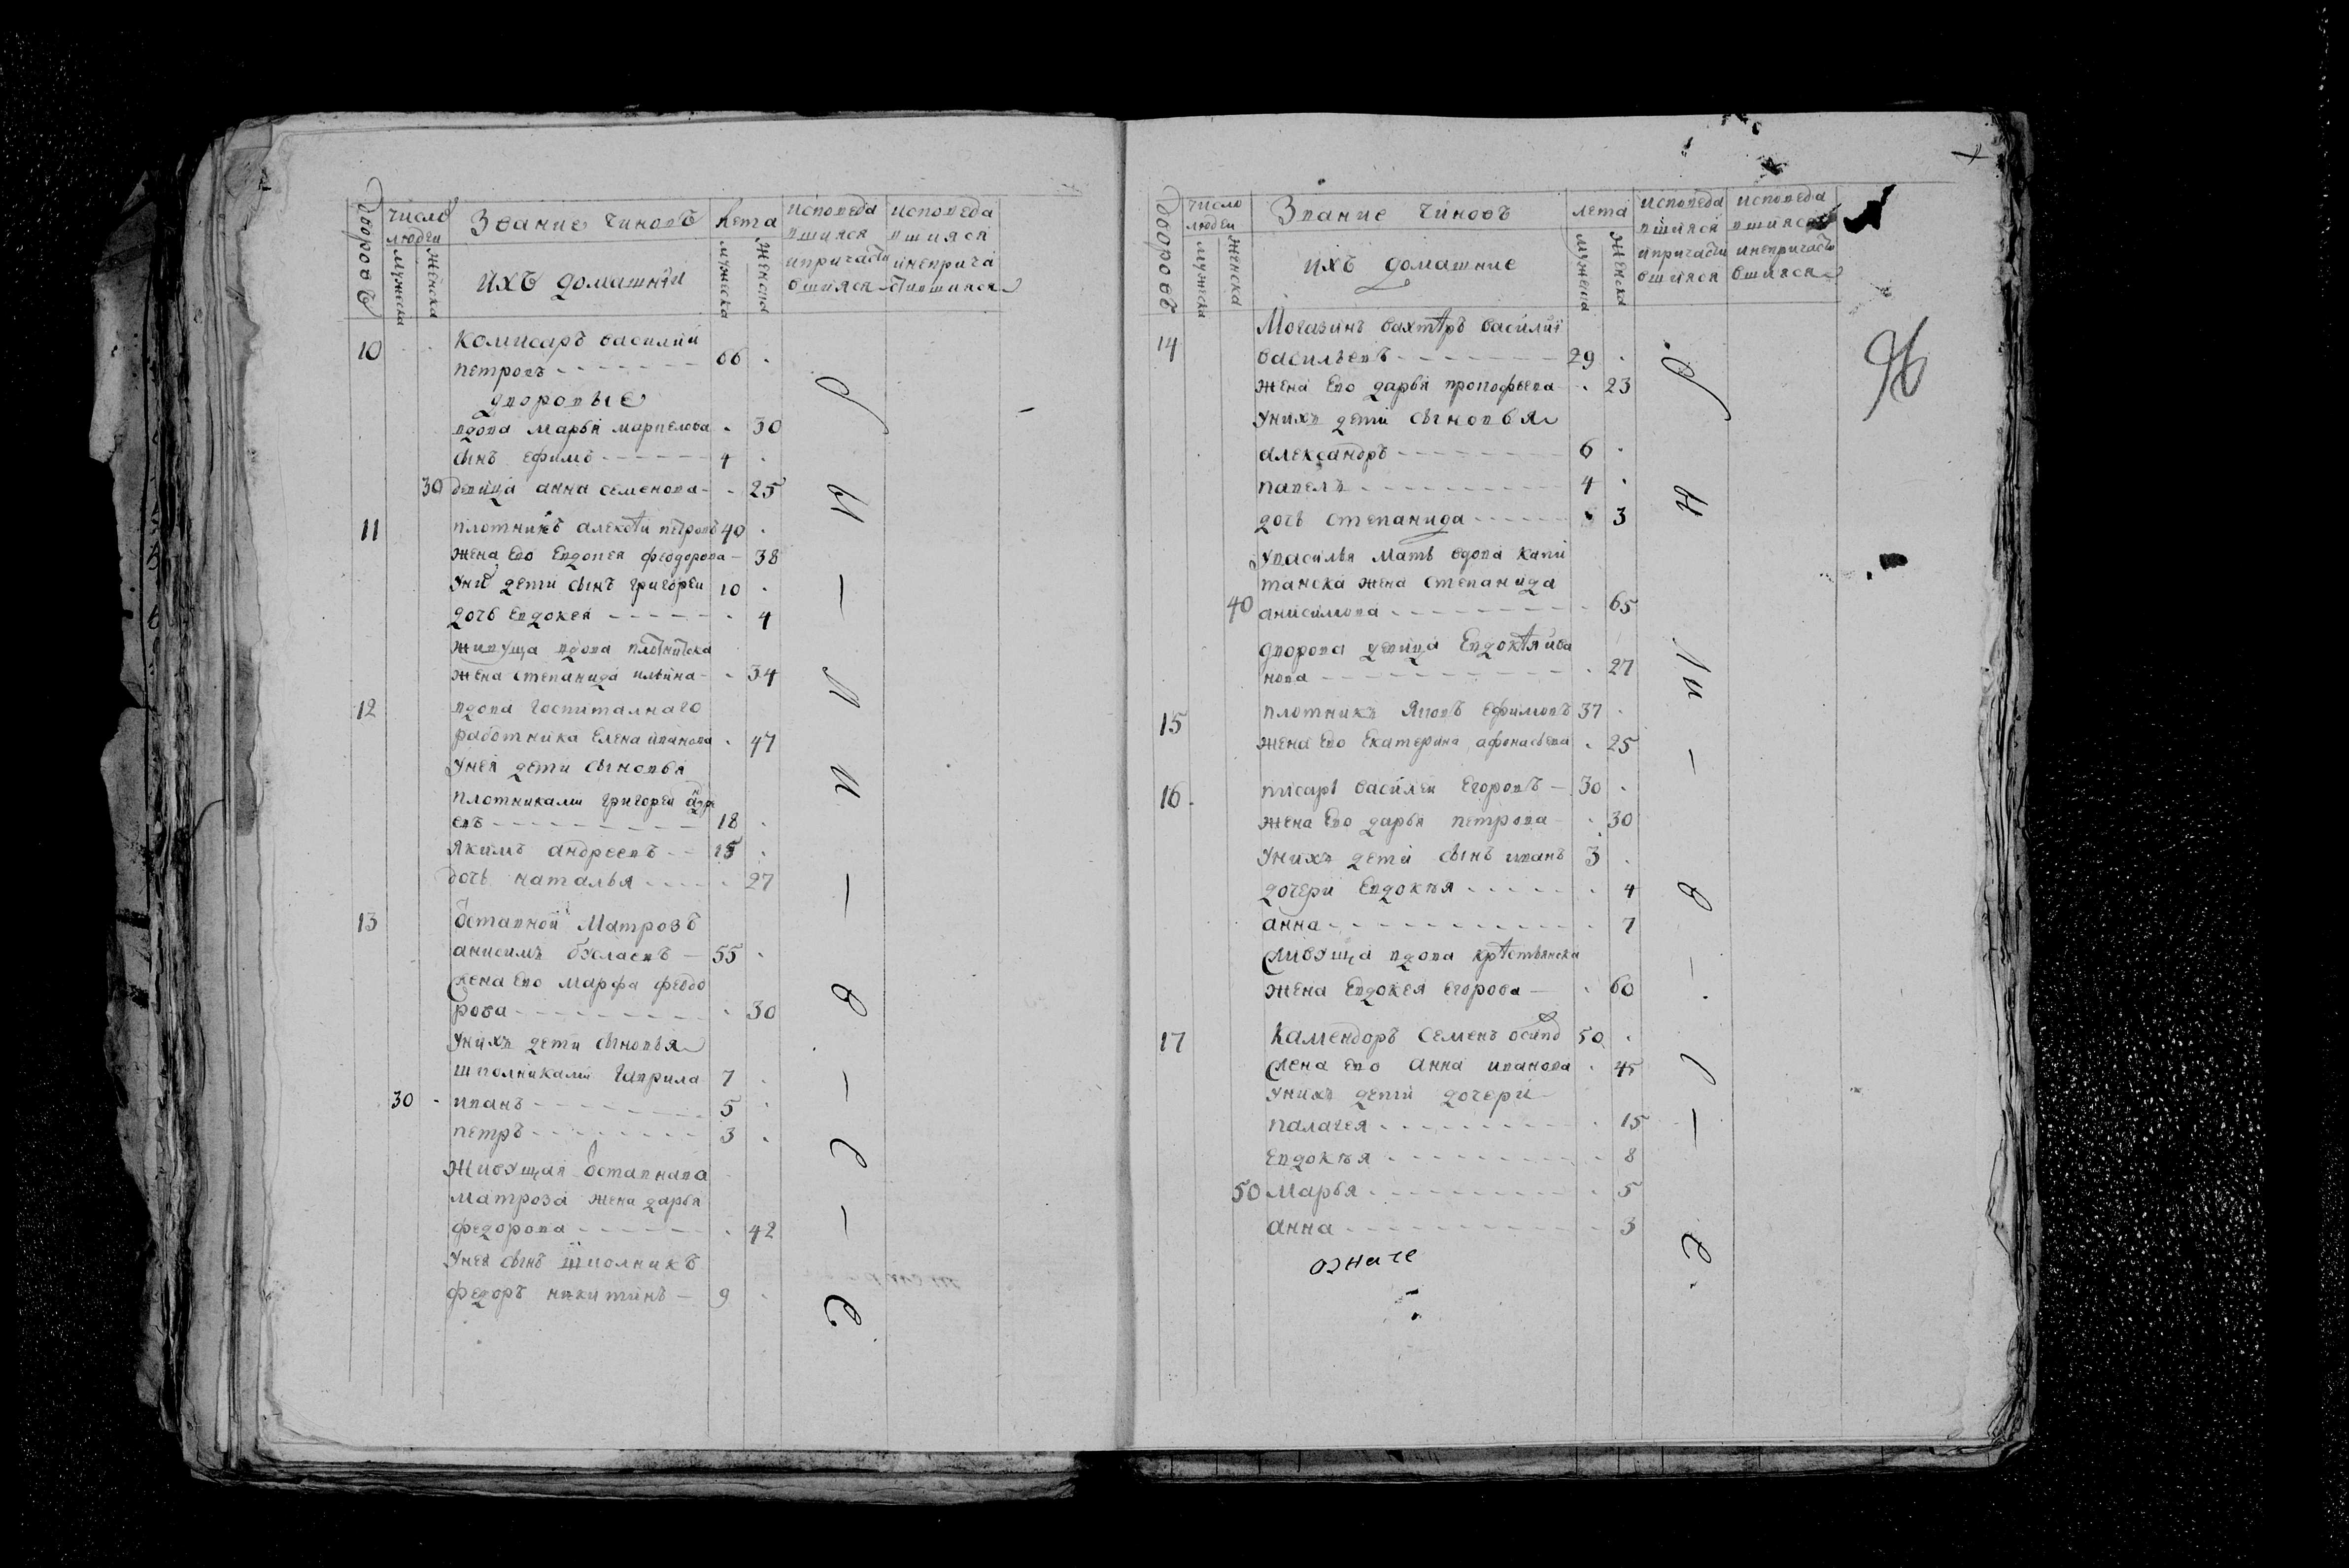 дворовъ
число людей
мужеска
женска
Звание чиновъ
ихъ домашнѣи
лета
мужеска
женска
исповеда
вшияся
ипричасти
вшияся
исповеда
вшияся
инеприча
стившияся
10 комисаръ василий
петровъ 66
дворовые
вдова марья маркелова 30
сынъ ефимъ 4
30 девица анна семенова 25
11 плотникъ алексѣи петровъ 40
жена ево евдокея феодорова 38
уни дети сынъ григореи 10
дочь евдокея 4
живуща вдова плотнитска
жена степанида ильина 34
12 вдова госпиталнаго
работника елена иванова 47
унея дети сыновья
плотниками григореи андре
евъ 18
якимъ андреевъ 15
дочь наталья 27
13 оставной матрозъ
анисимъ буслаевъ 55
жена ево марфа феодо
рова 30
унихъ дети сыновья
школниками гаврила 7
30 иванъ 5
петръ 3
живущая оставнава
матроза жена дарья
федорова 42
унея сынъ школникъ
федоръ никитинъ 9
дворовъ
число людеи
мужеска
женска
Звание чиновъ
ихъ домашние
лета
мужеска
женска
исповеда
вшияся
ипричасти
вшияся
исповеда
вшияся
инепричасти
вшияся
96
14 Могазинъ вахтѣръ василиї
васильевъ 29
жена ево дарья прокофьева 23
унихъ дети сыновья
александръ 6
павелъ 4
дочь степанида 3
увасилья мать вдова капи
танска жена степанида
40 анисимова 65
дворова девица Евдокѣя ива
нова 27
15 плотникъ яковъ ефимовъ 37
жена ево екатерина афонасьева 25
16 писарь василеи егоровъ 30
жена ево дарья петрова 30
унихъ дети сынъ иванъ 3
дочери евдокѣя 4
анна 7
живуща вдова крѣстьянска
жена евдокея егорова 60
17 камендоръ семенъ осипо 50
жена ево анна иванова 45
унихъ дети дочери
палагея 15
евдокѣя 8
50 марья 5
анна 3
означе